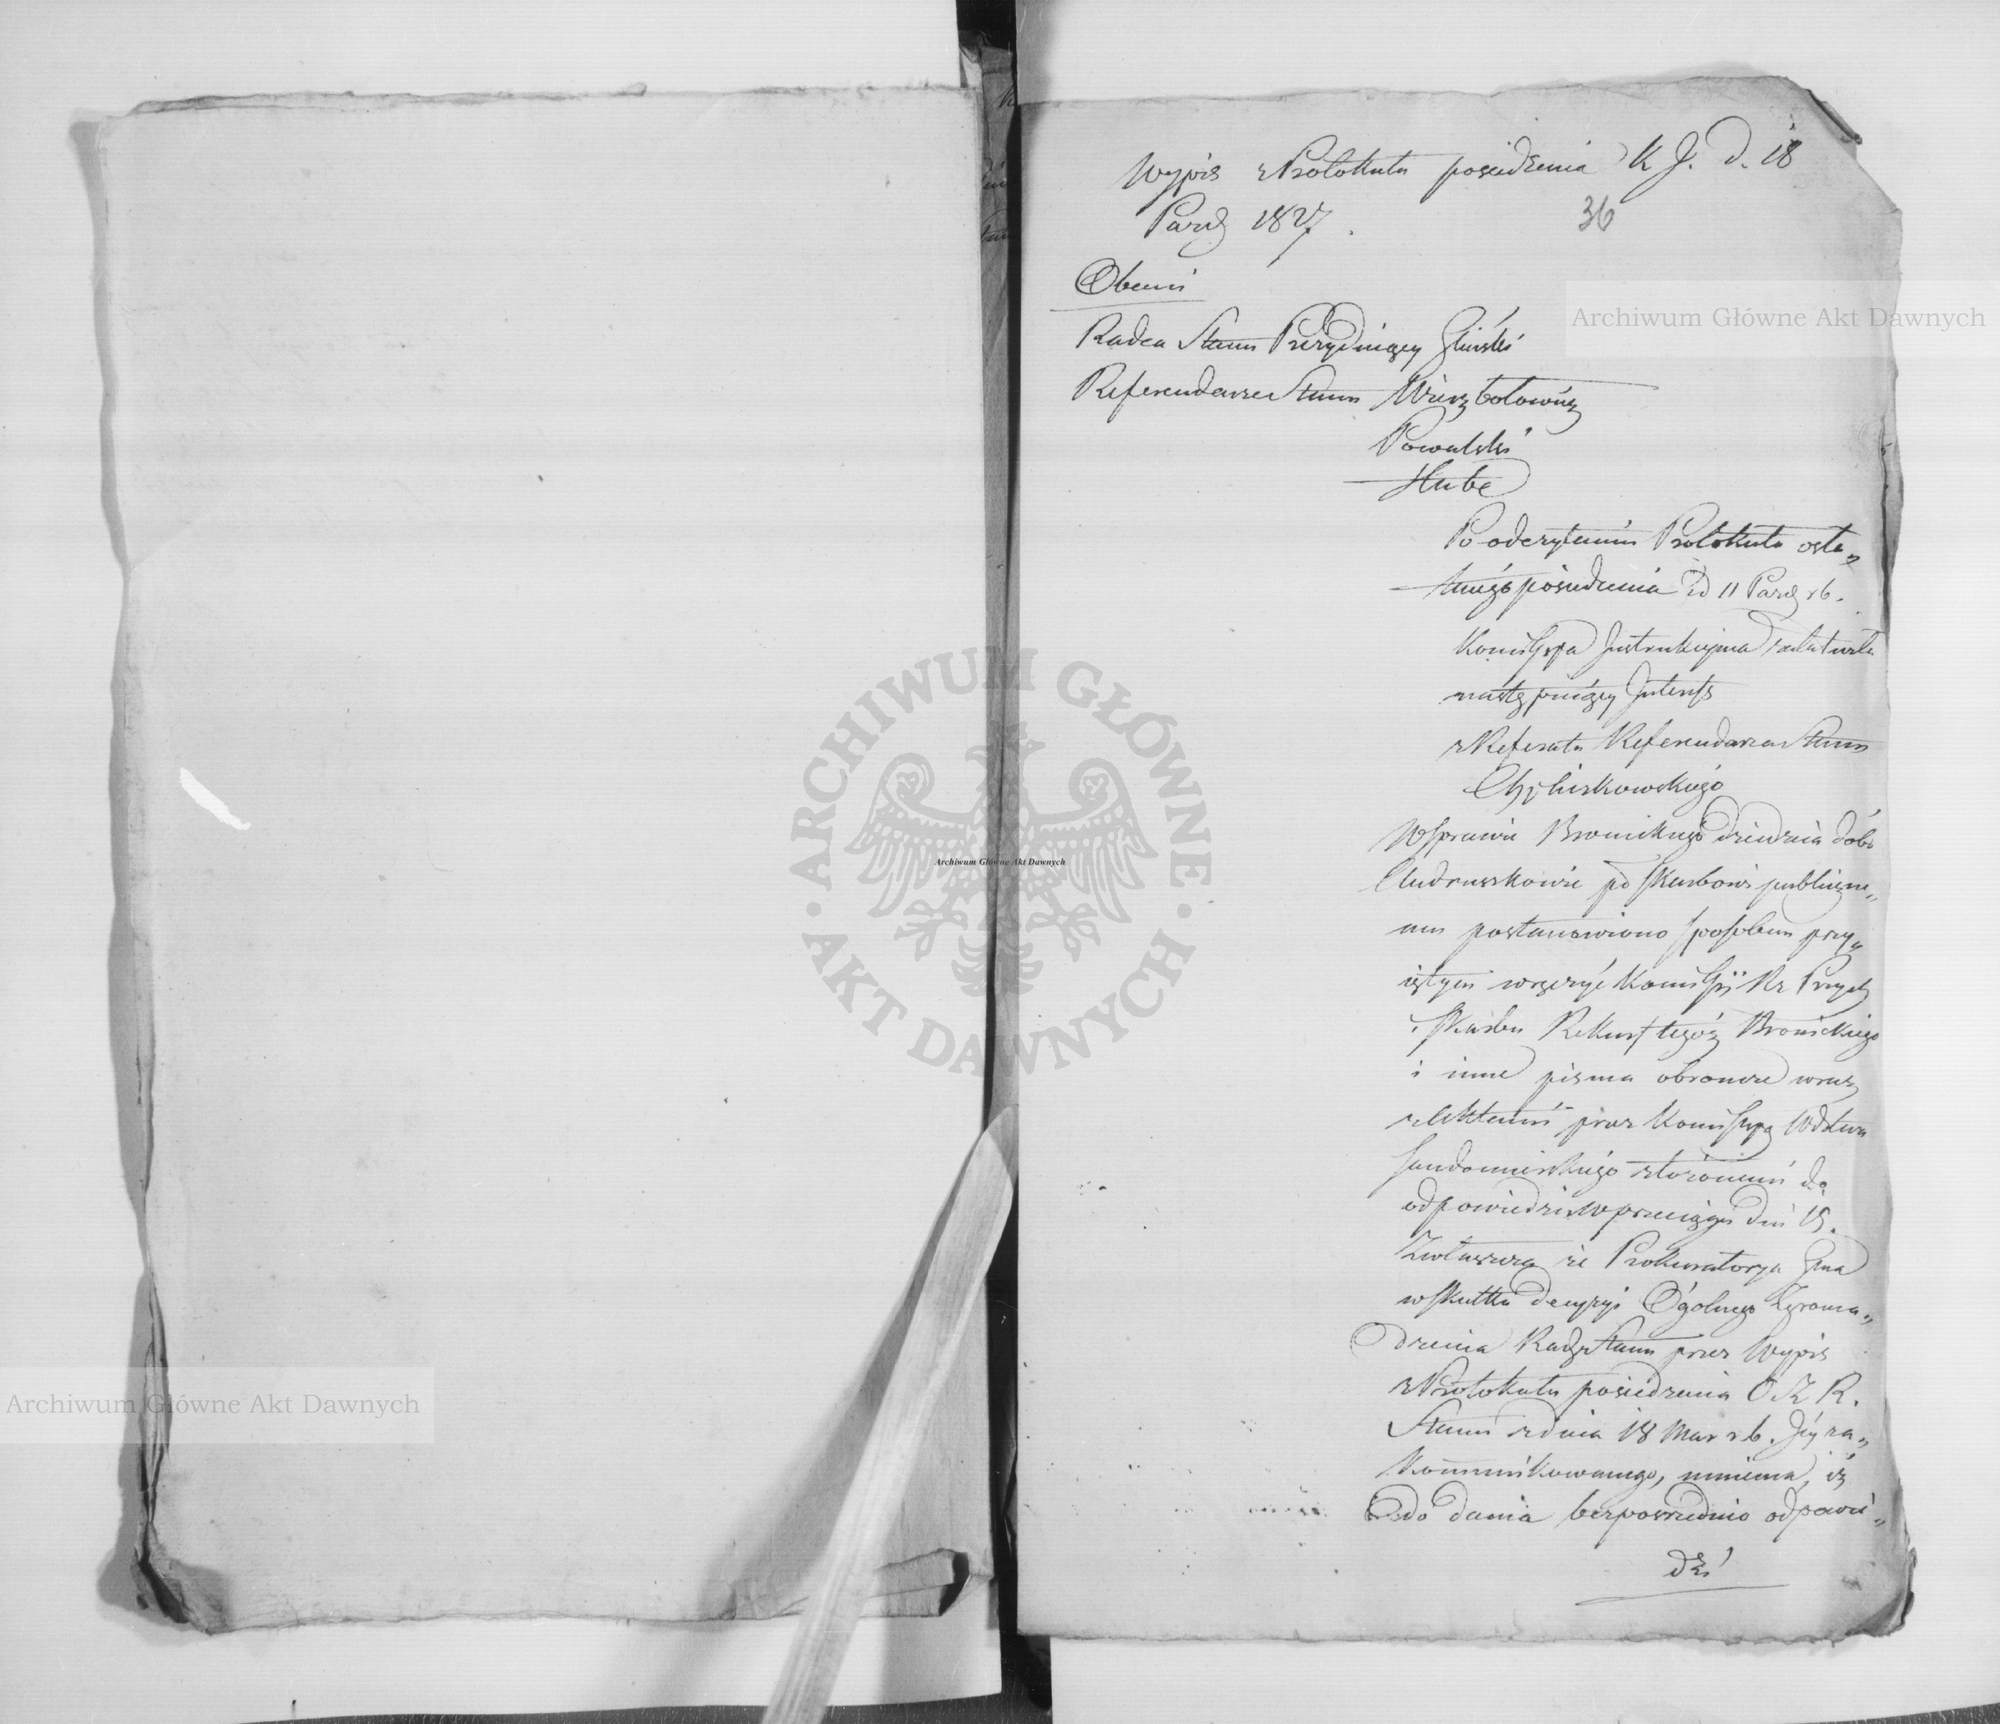 Wypis z Protokułu posiedzenia K J. d. 18
Paźd 1827.
36
Obecni
Radca Stanu Prezyduiący Gliński
Referendarze Stanu Wierzbołowicz
Powalski
Hube
Po odczytaniu Protokułu osta„
tniego posiedzenia z d 11 Paźd r b.
Kommissya Instrukcyjna załatwiła
następuiący Interess
z Referatu Referendarza Stanu
W sprawie Bronickiego dziedzica dóbr
Andruszkowic pd Skarbowi publiczne„
mu postanowiono sposobem przy„
iętym wezwać Kommissÿ Rz Przych
i Skarbu Rekurs tegoż Bronickiego
i inne pisma obronne wraz
z Aktami przez Kommissyą Wdztwa
Sandomierskiego złożonemi do
odpowiedzi w przeciągu dni 15.
Zwłaszcza że Prokuratorya Glna
w skutku decyzyi Ogólnego Zgroma„
dzenia Rady Stanu przez Wypis
z Protokułu posiedzenia O Z R.
Stanu z dnia 18 Mar r b. Jéy za„
kommunikowanego, mniema, iż
do dania bezpośrednio odpowie„
dzi
Archiwum Główne Akt Dawnych
Archiwum Główne Akt Dawnych
Archiwum Główne Akt Dawnych
ARCHIWUM GŁÓWNE · AKT DAWNYCH ·